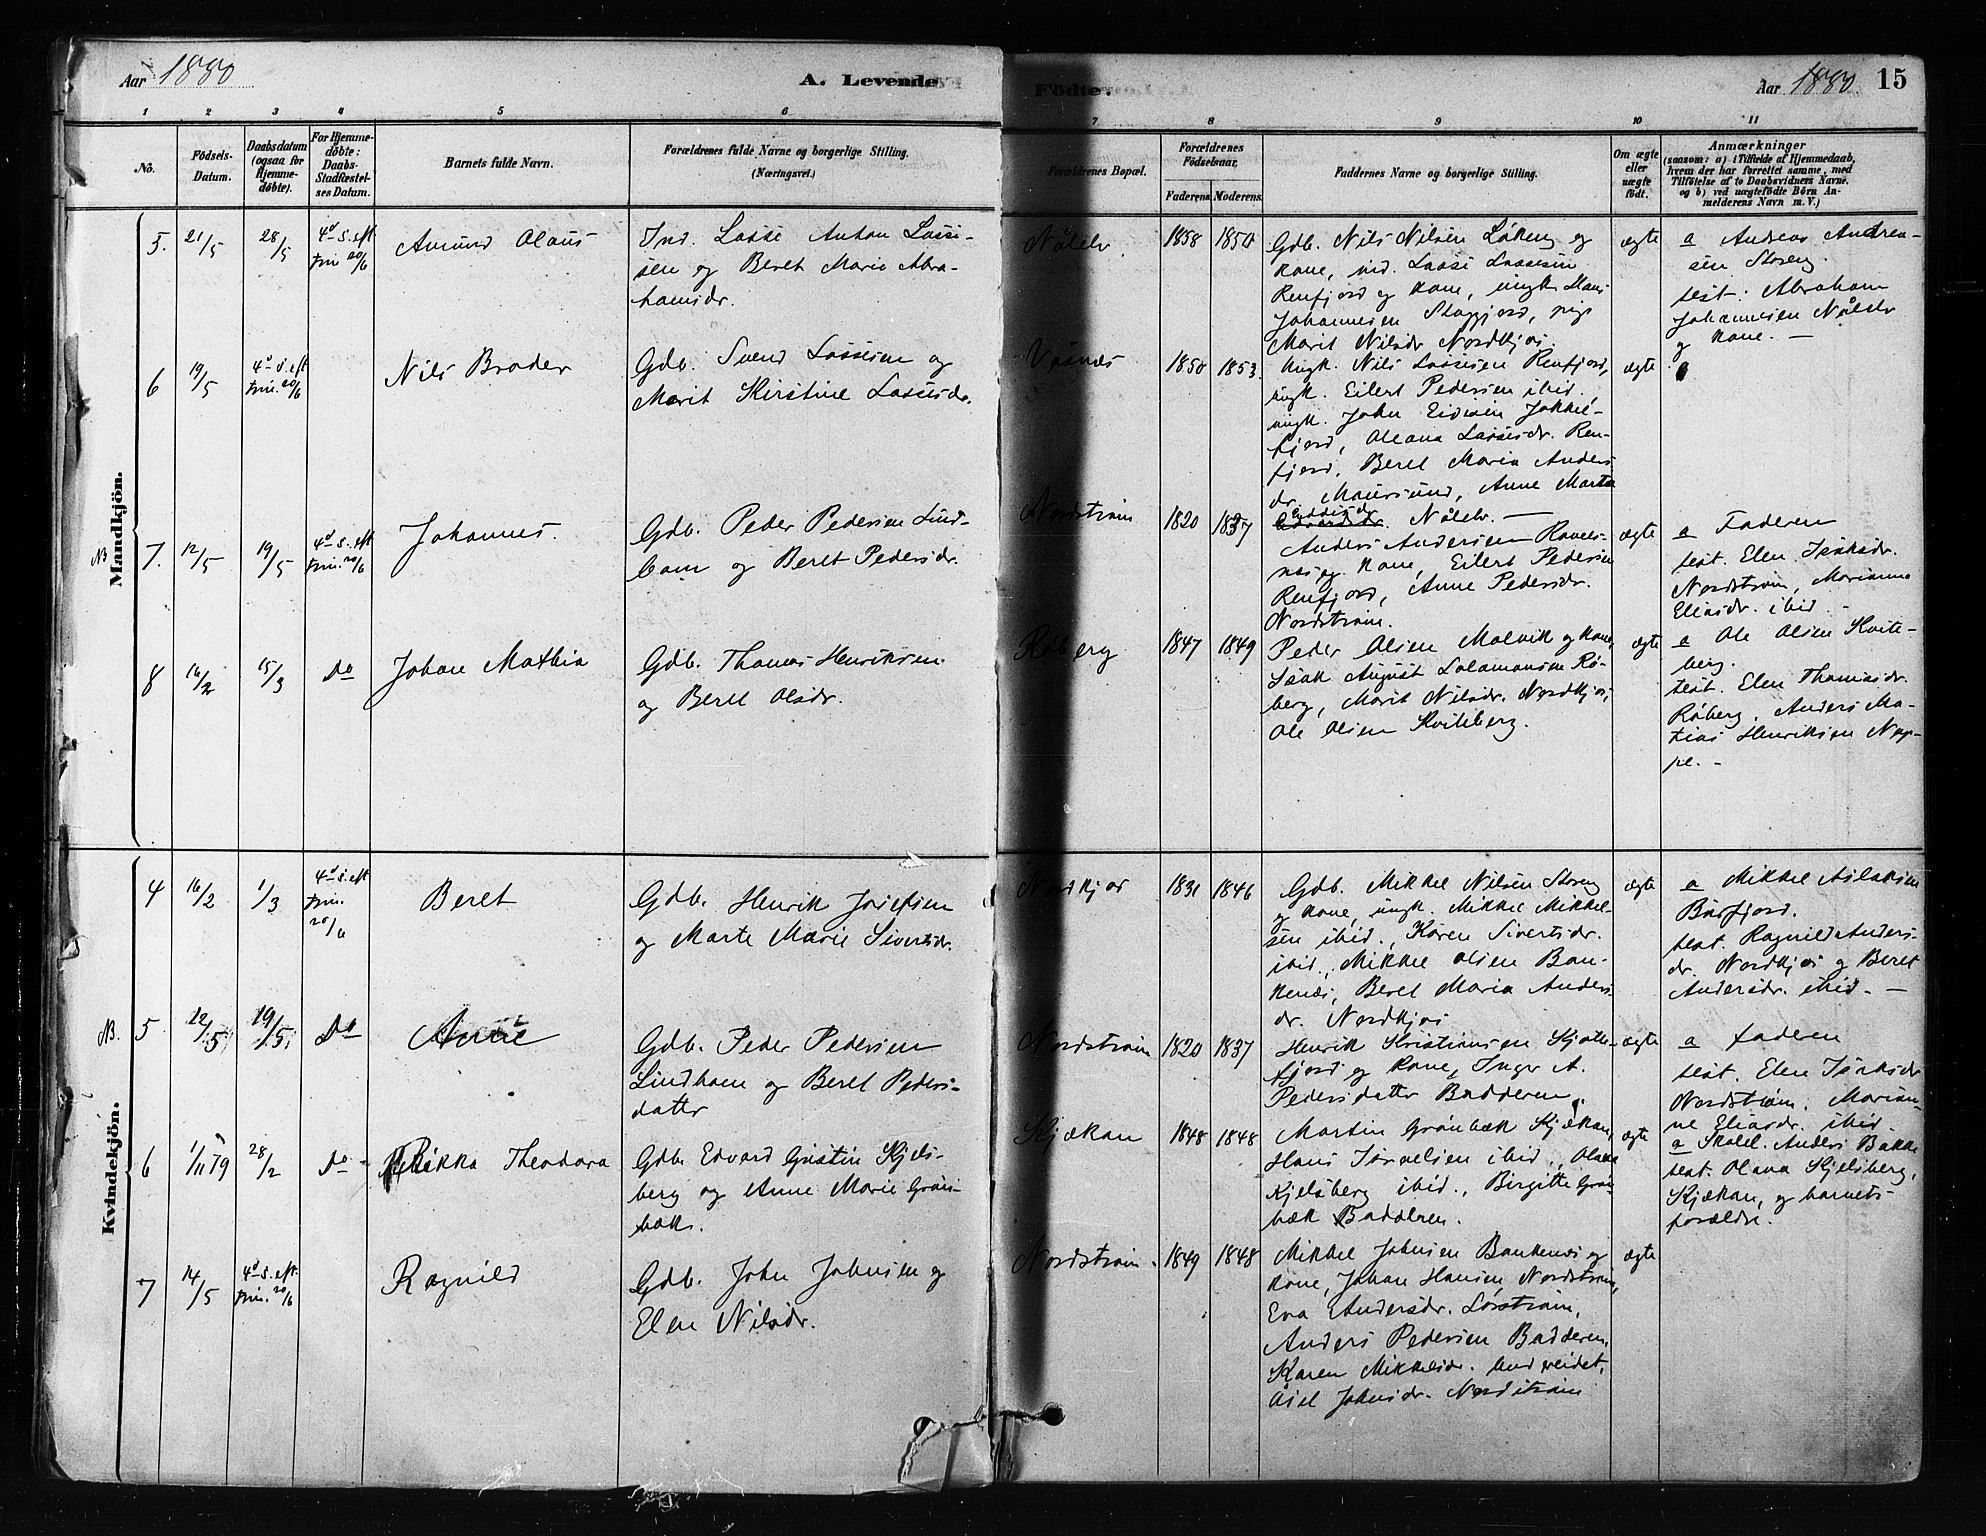 Aar 1880
A. Levende
Fødte.
Aar 1880.
15
1
2
3
4
5
6
7
8
9
10
11
No.
Fødsels-
Datum.
Daabsdatum
(ogsaa for
Hjemme-
døbte).
For Hjemme-
døbte:
Daabs-
Stadfæstel-
ses Datum.
Barnets fulde Navn.
Forældrenes fulde Navne og borgerlige Stilling.
(Næringsvei.)
Forældrenes Bopæl.
Forældrenes
Fødselsaar.
Faderens
Moderens
Faddernes Navne og borgerlige Stilling.
Om ægte
eller
uægte
født.
Anmærkninger
(saasom: a) i Tilfælde af Hjemmedaab,
hvem der har forrettet samme, med
Tilføielse af to Daabsvidners Navne,
og b) ved uægtefødte Børn An-
melderens Navn m. V.)
Mandkjøn.
5.
21/5
28/5
4de S. eft
trin. 20/6
Amund Olaus
Ind. Lasse Anton Lasse-
sen og Beret Marie Abra-
hamsdr.
Nålelv.
1858
1850
Gdb. Nils Nilsen Låkeng og
kone, ind. Lasse Lassesen
Renfjord og kone, ungk. Hans
Johannesen Stoppjord, pige
Marit Nilsdr Nordkjos.
ægte
a Andreas Andrea-
sen Storeng.
test: Abraham
Johannesen Nålelv
og kone. —
6
19/5
4de S. eft
trin. 20/6
Nils Broder
Gdb. Svend Lassesen og
Marit Kirstine Lassesdr.
Vasnæs
1850
1853.
Ungk. Nils Lassesen Renfjord,
ungk. Eilert Pedersen ibid.,
ungk. John Eidesen Jokkel-
fjord, Oleana Lassesdr. Ren-
fjord, Beret Maria Anders
dr. Maursund, Anne Marta
Nålelv. —
ægte
NB
7.
12/5
19/5
4de S. eft
trin. 20/6
Johannes.
Gdb. Peder Pedersen Lind-
ham og Beret Pedersdr.
Nordstrøm
1820
1837
Anders Andersen Ravels-
næs og kone, Eilert Pedersen
Renfjord, Anne Pedersdr.
Nordstrøm.
ægte
a Faderen
test. Elen Isaksdr.
Nordstrøm, Marianne
Eliasdr. ibid. —
8
16/2
15/3
Do
Johan Mathia
Gdb. Thomas Henriksen
og Beret Olsdr.
Røberg
1847
1849
Peder Olsen Malvik og kone,
Isak August Salamonsen Rø-
berg, Marit Nilsdr. Nordkjos,
Ole Olsen Kviteberg.
ægte
a Ole Olsen Kvite-
berg.
test. Elen Thomasdr.
Røberg. Anders Ma-
tias Henriksen Nup-
pe. -
Kvindekjøn.
4
16/2
1/3
4de S. eft
trin.
20/6
Beret
Gdb. Henrik Josefsen
og Marte Marie Sivertsdr.
Nordkjos
1831
1846
Gdb. Mikkel Nilsen Storeng
og kone, ungk. Mikkel Mikkel-
sen ibid., Karen Sivertsdr.
ibid., Mikkel Olsen Ban-
kenæs, Beret Maria Anders
dr. Nordkjos
ægte
a Mikkel Aslaksen
Burfjord.
test. Ragnild Anders-
dr. Nordkjos og Beret
Andersdr. ibid. —
NB.
5
12/5
19/5
Do
Anne
Gdb. Peder Pedersen
Lindham og Beret Peders-
datter
Nordstrøm
1820
1837
Henrik Kristiansen Kjølle-
fjord og kone, Inger A.
Pedersdatter Badderen.
ægte
a Faderen
test. Elen Isaksdr
Nordstrøm, Marian-
ne Eliasdr. ibid.
6
1/11 79
28/2
Do
Rikka Theodora
Gdb. Edvard Gustin Kjels-
berg og Anne Marie Grøn-
bæk.
Kjækan
1848
1848
Martin Grønbæk Kjækan,
Hans Israelsen ibid., Olava
Kjelsberg ibid., Birgitte Grøn-
bæk Badderen.
ægte
a Skolel. Anders Bakke
test. Olava Kjelsberg,
Kjækan, og barnets
forældre.
7
14/5
4de S. eft.
trin. 20/6
Ragnild
Gdb. John Johnsen og
Elen Nilsdr.
Nordstrøm.
1849
1848
Mikkel Johnsen Bankenæs og
kone, Johan Hansen Nordstrøm,
Eva Andersdr. Sørstrøm,
Anders Pedersen Badderen,
Karen Mikkelsdr. Undereidet,
Åsel Johnsdr. Nordstrøm
ægte